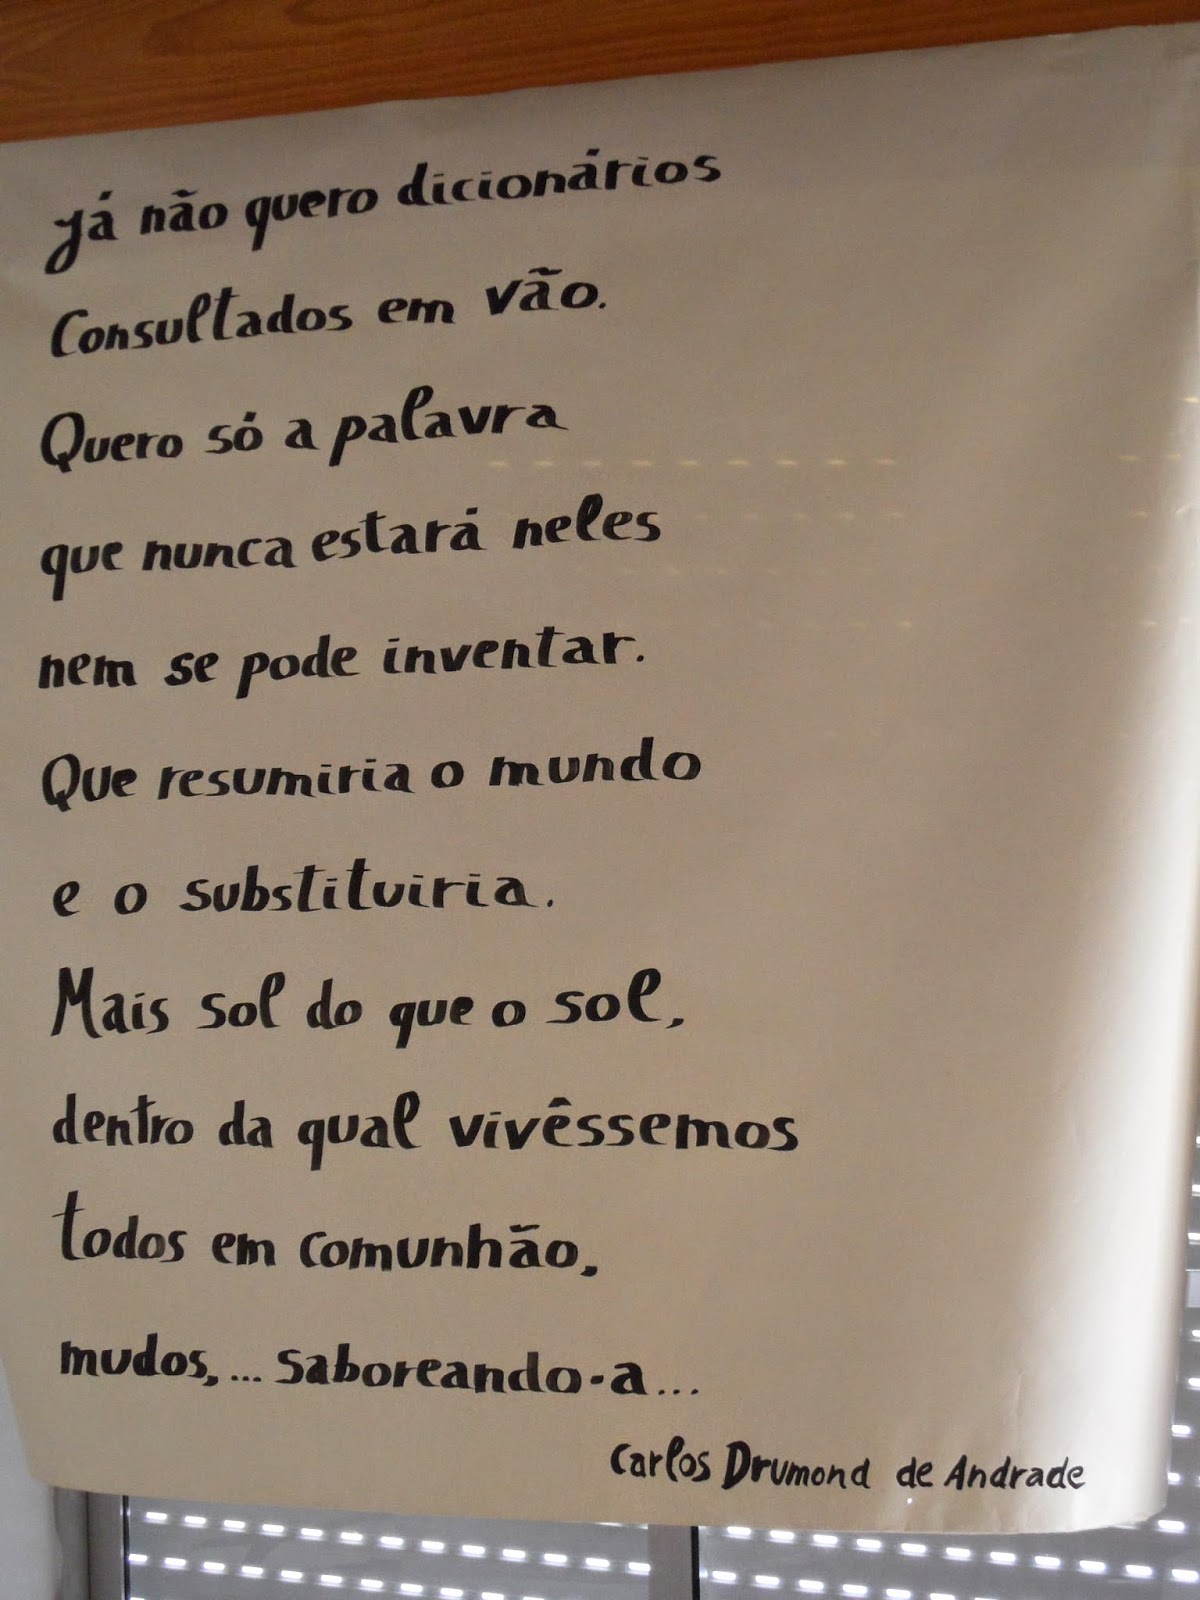 já não quero dicionários
Consultados em vão.
Quero só a palavra
que nunca estará neles
nem se pode inventar.
Que resumiria o mundo
e o substituiria.
Mais sol do que o sol,
dentro da qual vivêssemos
todos em comunhão,
mudos,... saboreando-a...
Carlos Drumond de Andrade